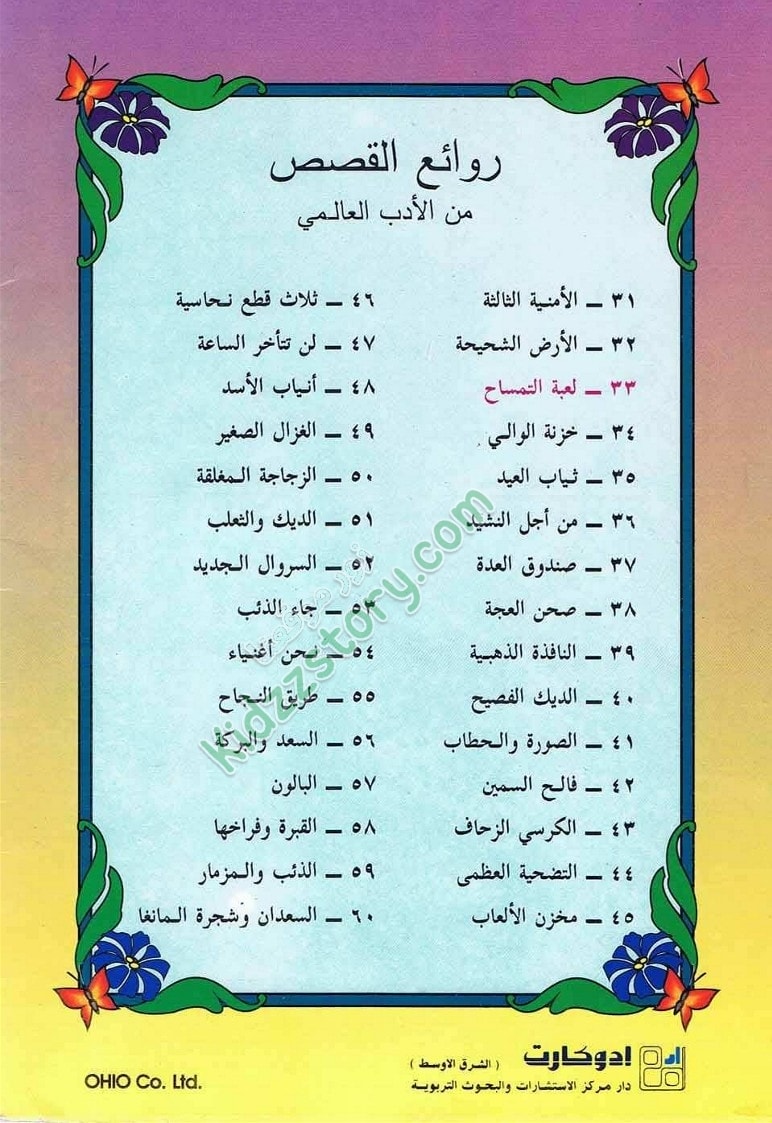 روائع القصص
من الأدب العالمي
٣١ – الأمنية الثالثة
٣٢ – الأرض الشحيحة
٣٣ – لعبة التمساح
٣٤ – خزنة الوالي
٣٥ – ثياب العيد
٣٦ – من أجل النشيد
٣٧ – صندوق العدة
٣٨ – صحن العجة
٣٩ – النافذة الذهبية
٤٠ – الديك الفصيح
٤١ – الصورة والحطاب
٤٢ – فالح السمين
٤٣ – الكرسي الزحاف
٤٤ – التضحية العظمى
٤٥ – مخزن الألعاب
٤٦ – ثلاث قطع نحاسية
٤٧ – لن تتأخر الساعة
٤٨ – أنياب الأسد
٤٩ – الغزال الصغير
٥٠ – الزجاجة المغلقة
٥١ – الديك والثعلب
٥٢ – السروال الجديد
٥٣ – جاء الذئب
٥٤ – نحن أغنياء
٥٥ – طريق النجاح
٥٦ – السعد والبركة
٥٧ – البالون
٥٨ – القبرة وفراخها
٥٩ – الذئب والمزمار
٦٠ – السعدان وشجرة المانغا
Kidzzstory.com
ادوكارت (الشرق الاوسط)
دار مركز الاستشارات والبحوث التربوية
OHIO Co. Ltd.